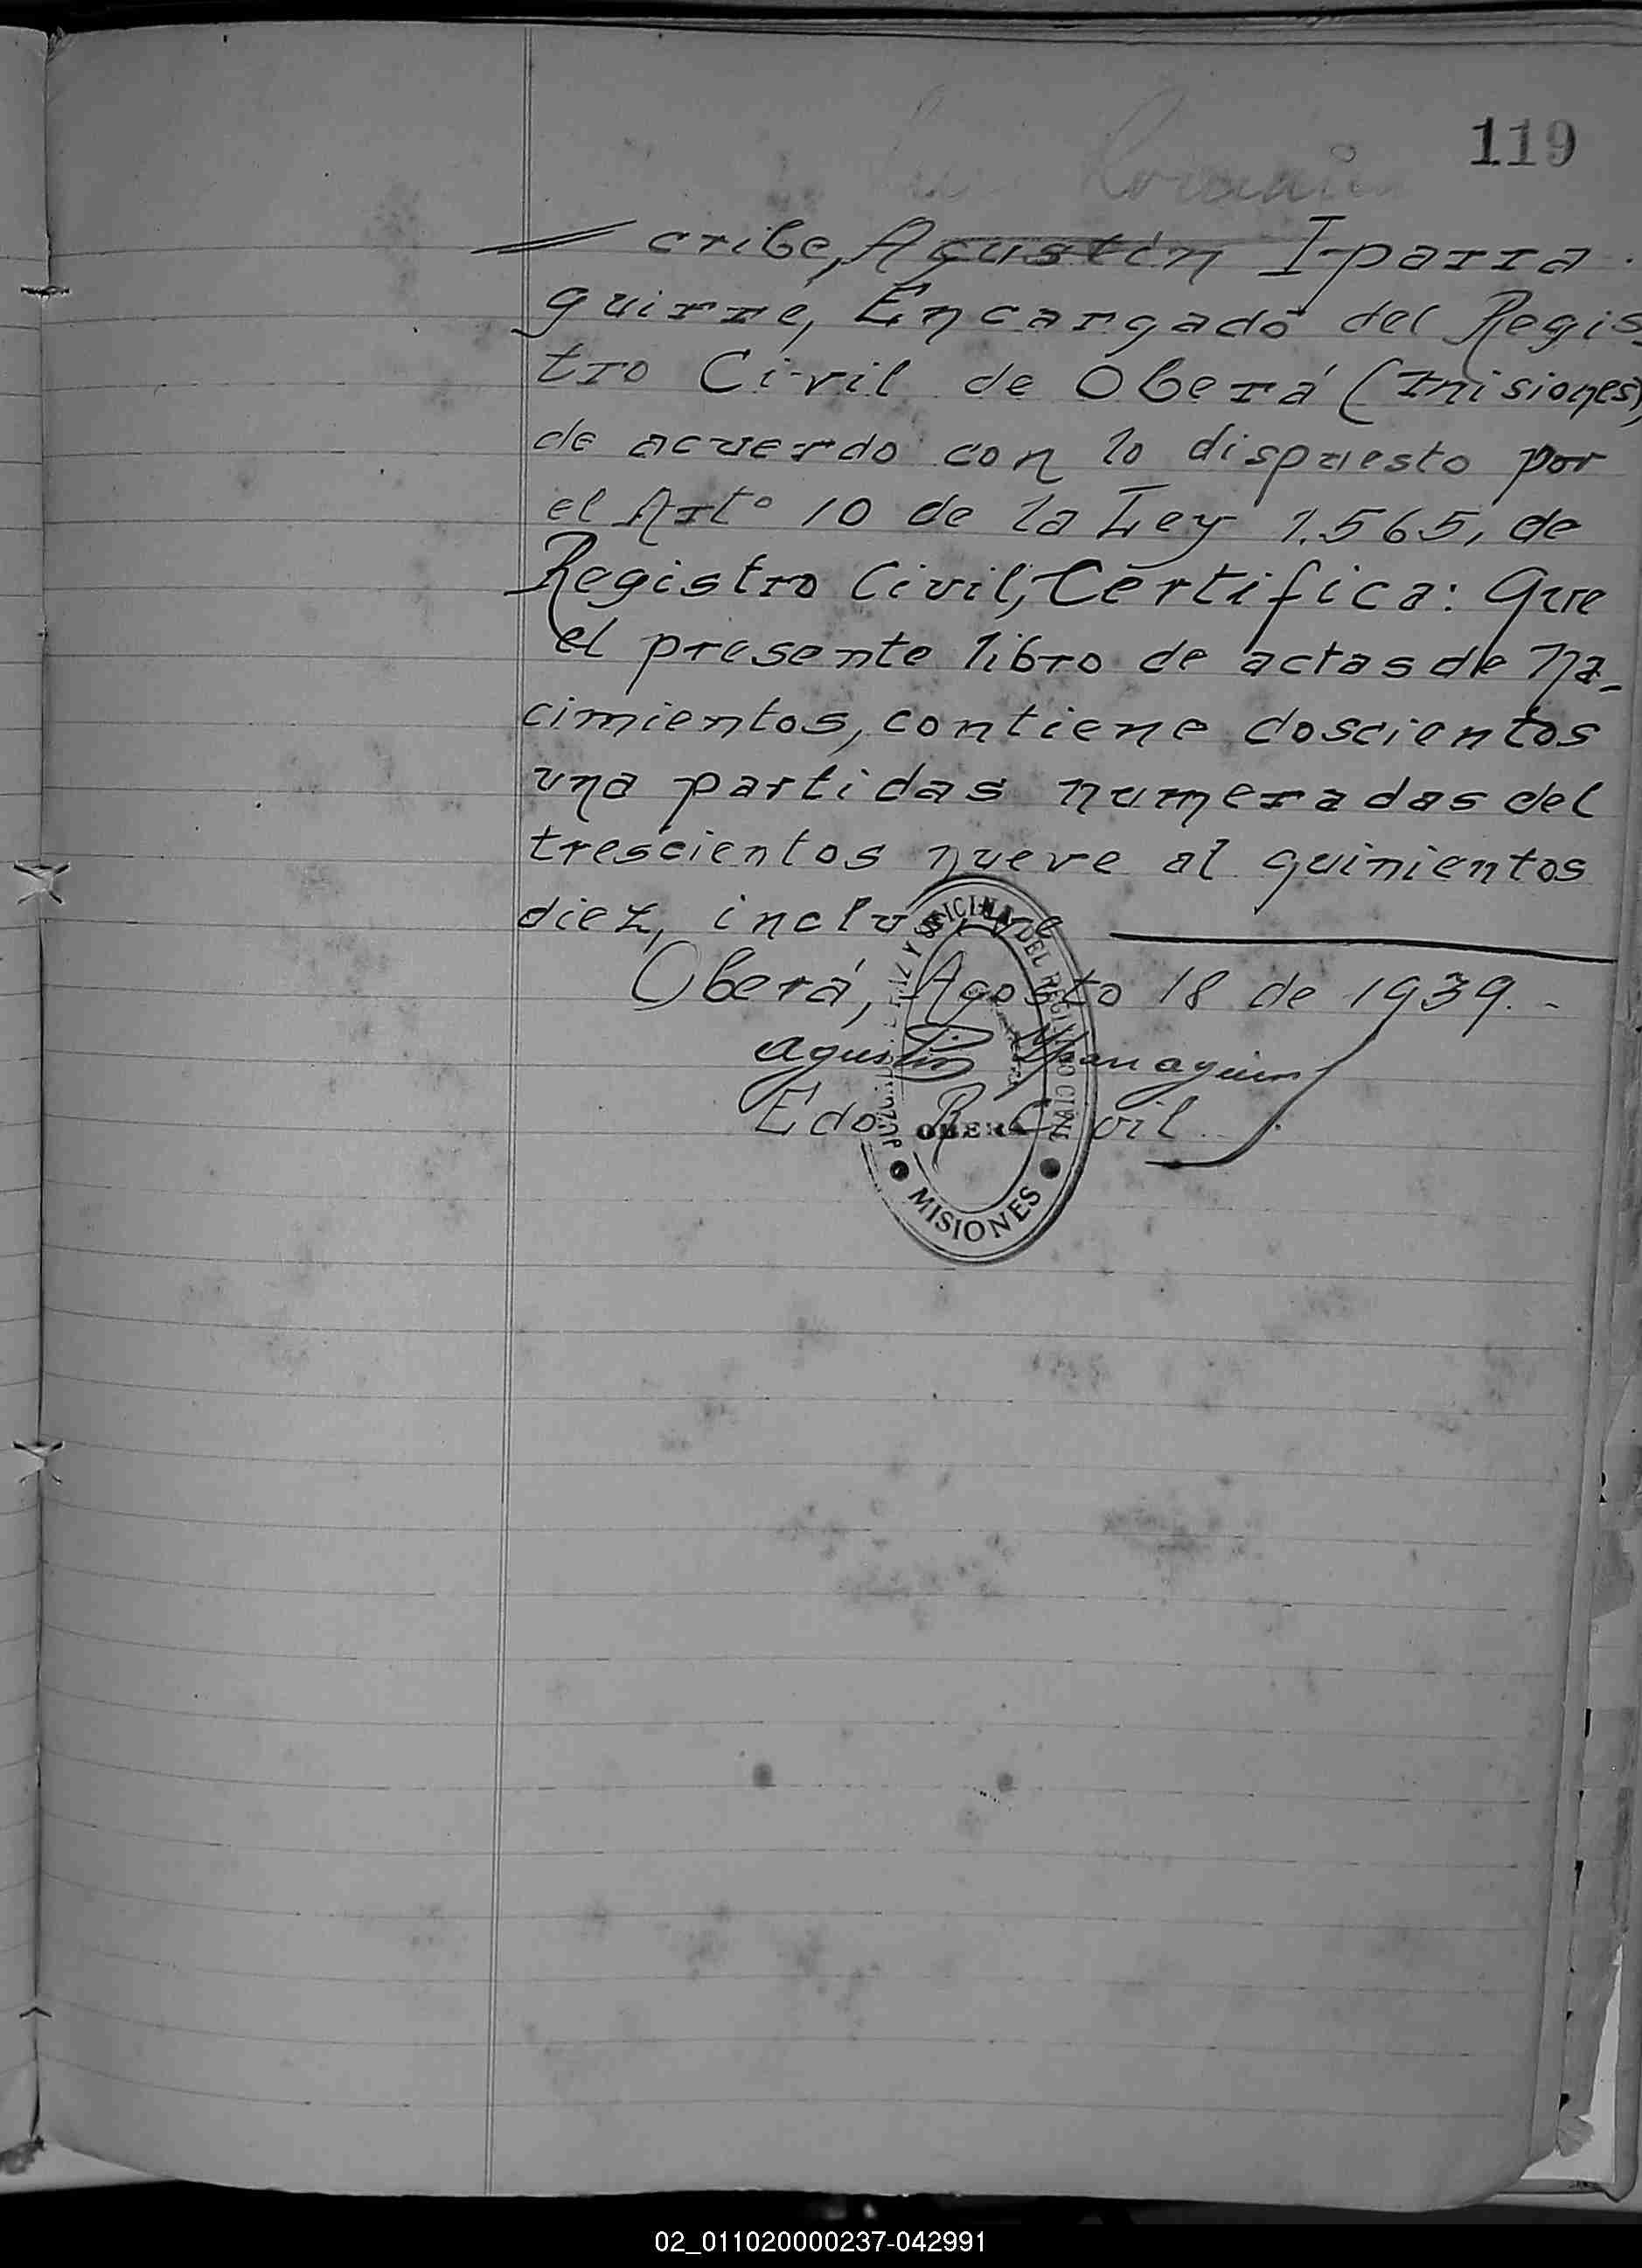 119
cribe, Agustín Iparra.
guirre, Encargado del Regis
tro Civil de Oberá (Misiones)
de acuerdo con lo dispuesto por
el Artº 10 de la Ley 1.565, de
Registro Civil, Certifica: Que
el presente libro de actas de Na-
cimientos, contiene doscientos
una partidas numeradas del
trescientos nueve al quinientos
diez, inclusive
Oberá, Agosto 18 de 1939.-
Agustín Iparraguirre
Edo R. Civil.
JUZGADO DE PAZ Y OFICINA DEL REGISTRO CIVIL
OBERA
MISIONES
02_011020000237-042991